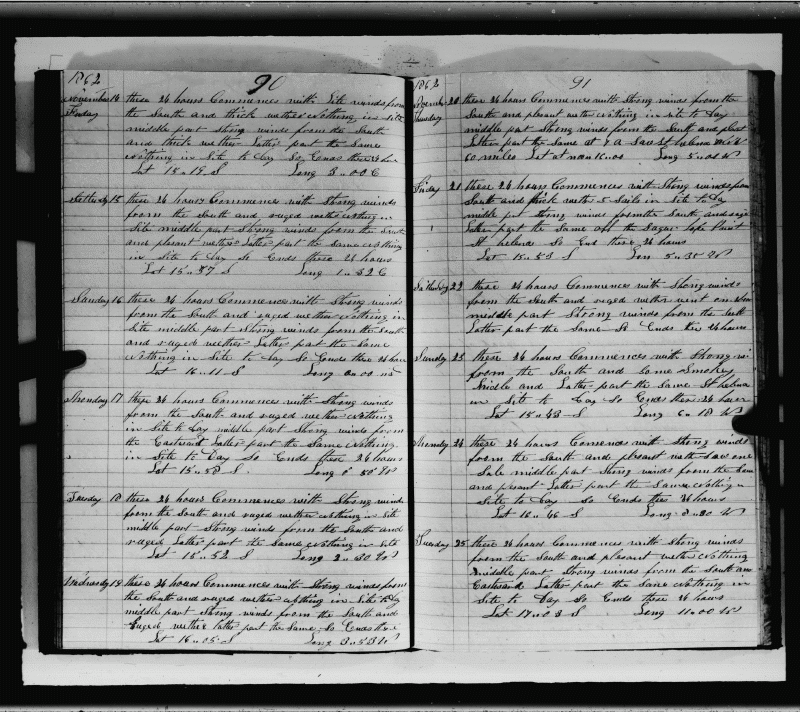 1862
90
November 14 these 24 hours Commences with Lite winds from
Friday the South and thick wether Nothing in site
middle part Strong winds from the South
and thick wether Latter part the Same
Nothing in Site to day So Ends these 24 hours
Lat 15 " 19 S Long 3 " 00 E
Satturday 15 these 24 hours Commences with Strong winds
from the South and ruged wether nothing in
Site middle part Strong winds from the South
and plesant wether Latter part the same nothing
in Site to day So Ends these 24 hours
Lat 15 " 57 S Long 1 " 32 E
Sunday 16 these 24 hours Commences with Strong winds
from the South and ruged wether Nothing in
Site middle part Strong winds from the South
and ruged wether Latter part the Same
Nothing in Site to day So Ends these 24 hours
Lat 16 " 11 S Long 0 " 00
Monday 17 these 24 hours Commences with Strong winds
from the South and ruged wether Nothing
in Site to Day middle part Strong winds from
the Eastward Latter part the Same Nothing
in Site to day So Ends these 24 hours
Lat 15 " 58 S Long 0 " 50 W
Tuesday 18 these 24 hours Commences with Strong winds
from the South and ruged wether Nothing in Site
middle part Strong winds from the South and
ruged Latter part the Same Nothing in Site
Lat 15 " 52 S Long 2 " 30 W
Wednesday 19 these 24 hours Commences with Strong winds from
the South and ruged wether nothing in Site to Day
middle part Strong winds from the South and
Ruged wether latter part the Same So Ends the
Lat 16 " 05 S Long 3 " 53 W
1862
91
November 20 these 24 hours Commences with Strong winds from the
Thursday South and plesant wether Nothing in site to day
middle part Strong winds from the South and
Latter part the Same at 7 A Saw St helena
60 miles Lat at noon 16 " 00 Long 5 " 00 W
Friday 21 these 24 hours Commences with Strong winds from
South and thick with 5 Sails in Site to day
middle part Strong winds from the South and
Latter part the Same off the Sugar Lofe Point
St helena So End these 24 hours
Lat 15 " 53 S Lon 5 " 35 W
Satturday 22 these 24 hours Commences with Strong winds
from the South and ruged wether went on
middle part Strong winds from the South
Latter part the Same So Ends the 24 hours
Sunday 23 these 24 hours Commences with Strong
from the South and Some Smokey
Middle and Latter part the Same St helena
in Site to Day So Ends these 24 hours
Lat 15 " 43 S Long 6 " 18 W
Monday 24 these 24 hours Comences with Strong winds
from the South and plesant weth Saw one
Sale middle part Strong winds from the Same
and plesant Latter part the Same Nothing in
Site to Day So Ends thes 24 hours
Lat 16 " 46 S Long 30 W
Tuesday 25 these 24 hours Commences with Strong winds
from the South and plesant wether Nothing
middle part Strong winds from the South and
Eastward Latter part the Same Nothing in
Site to Day So Ends these 24 hours
Lat 17 " 03 S Long 11 " 00 W